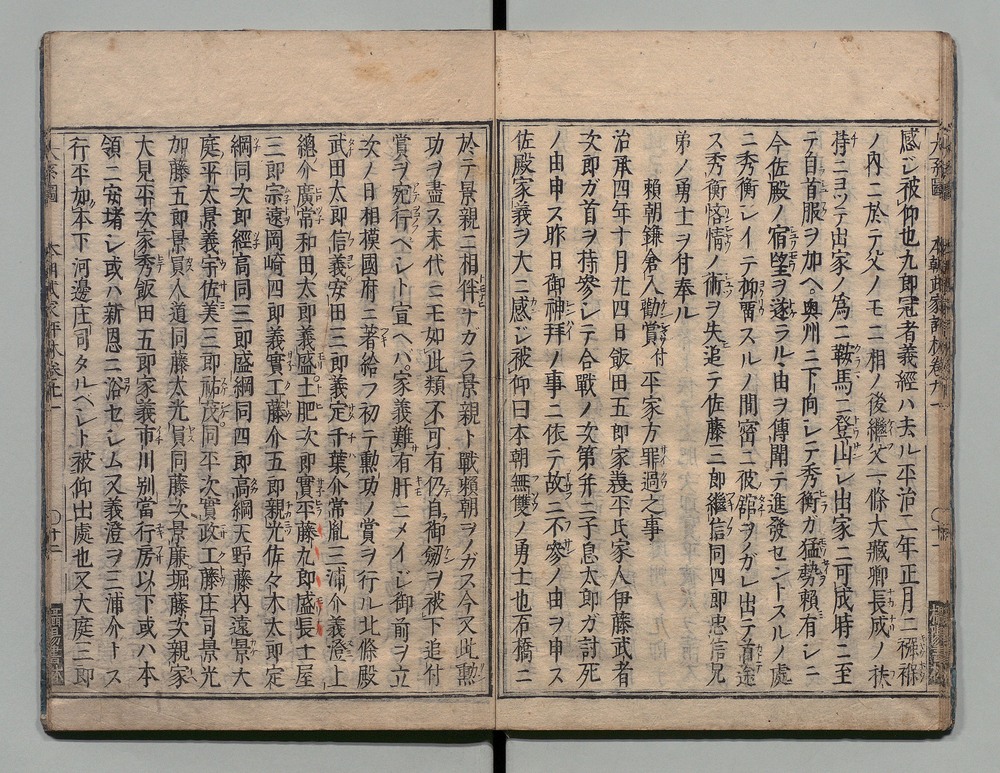 感ジ被仰也九郎冠者義經ハ去ル平治二年正月ニ襁褓
ノ内ニ於テ父ノモニ相ノ後繼父一條大藏卿長成ノ扶
持ニヨツテ出家ノ爲ニ鞍馬ニ登山シ出家ニ可成時ニ至
テ自首服ヲ加ヘ奥州ニ下向シテ秀衡ガ猛勢賴有シニ
今佐殿ノ宿望ヲ遂ラル由ヲ傳聞テ進發セントスルノ處
ニ秀衡シイテ抑留スルノ間密ニ彼舘ヲノガレ出テ首途
ス秀衡悋惜ノ術ヲ失追テ佐藤三郎繼信同四郎忠信兄
弟ノ勇士ヲ付奉ル
賴朝鎌倉入勸賞付平家方罪過之事
治承四年十月廿四日飯田五郎家義平氏家人伊藤武者
次郎ガ首ヲ持參シテ合戰ノ次第并ニ子息太郎ガ討死
ノ由申ス昨日御神拜ノ事ニ依テ故ニ不參ノ由ヲ申ス
佐殿家義ヲ大ニ感ジ被仰曰本朝無雙ノ勇士也石橋ニ
於テ景親ニ相伴ナガラ景親ト戰賴朝ヲノガス今又此勲
功ヲ盡ス末代ニモ如此類不可有仍自御劒ヲ被下追付
賞ヲ宛行ベシト宣ヘバ家義難有肝ニメイジ御前ヲ立
次ノ日相模國府ニ著給フ初テ勲功ノ賞ヲ行ル北條殿
武田太郎信義安田三郎義定千葉介常胤三浦介義澄上
緫介廣常和田太郎義盛土肥次郎實平藤九郎盛長士屋
三郎宗遠岡崎四郎義實工藤介五郎親光佐々木太郎定
綱同次郎經高同三郎盛綱同四郎高綱天野藤内遠景大
庭平太景義宇佐美三郎祐茂同平次實政工藤庄司景光
加藤五郎景員入道同藤太光員同藤次景廉堀藤次親家
大見平次家秀飯田五郎家義市川別當行房以下或ハ本
領ニ安堵シ或ハ新恩ニ浴セシム又義澄ヲ三浦介トス
行平如本下河邊庄司タルベシト被仰出處也又大庭三郎